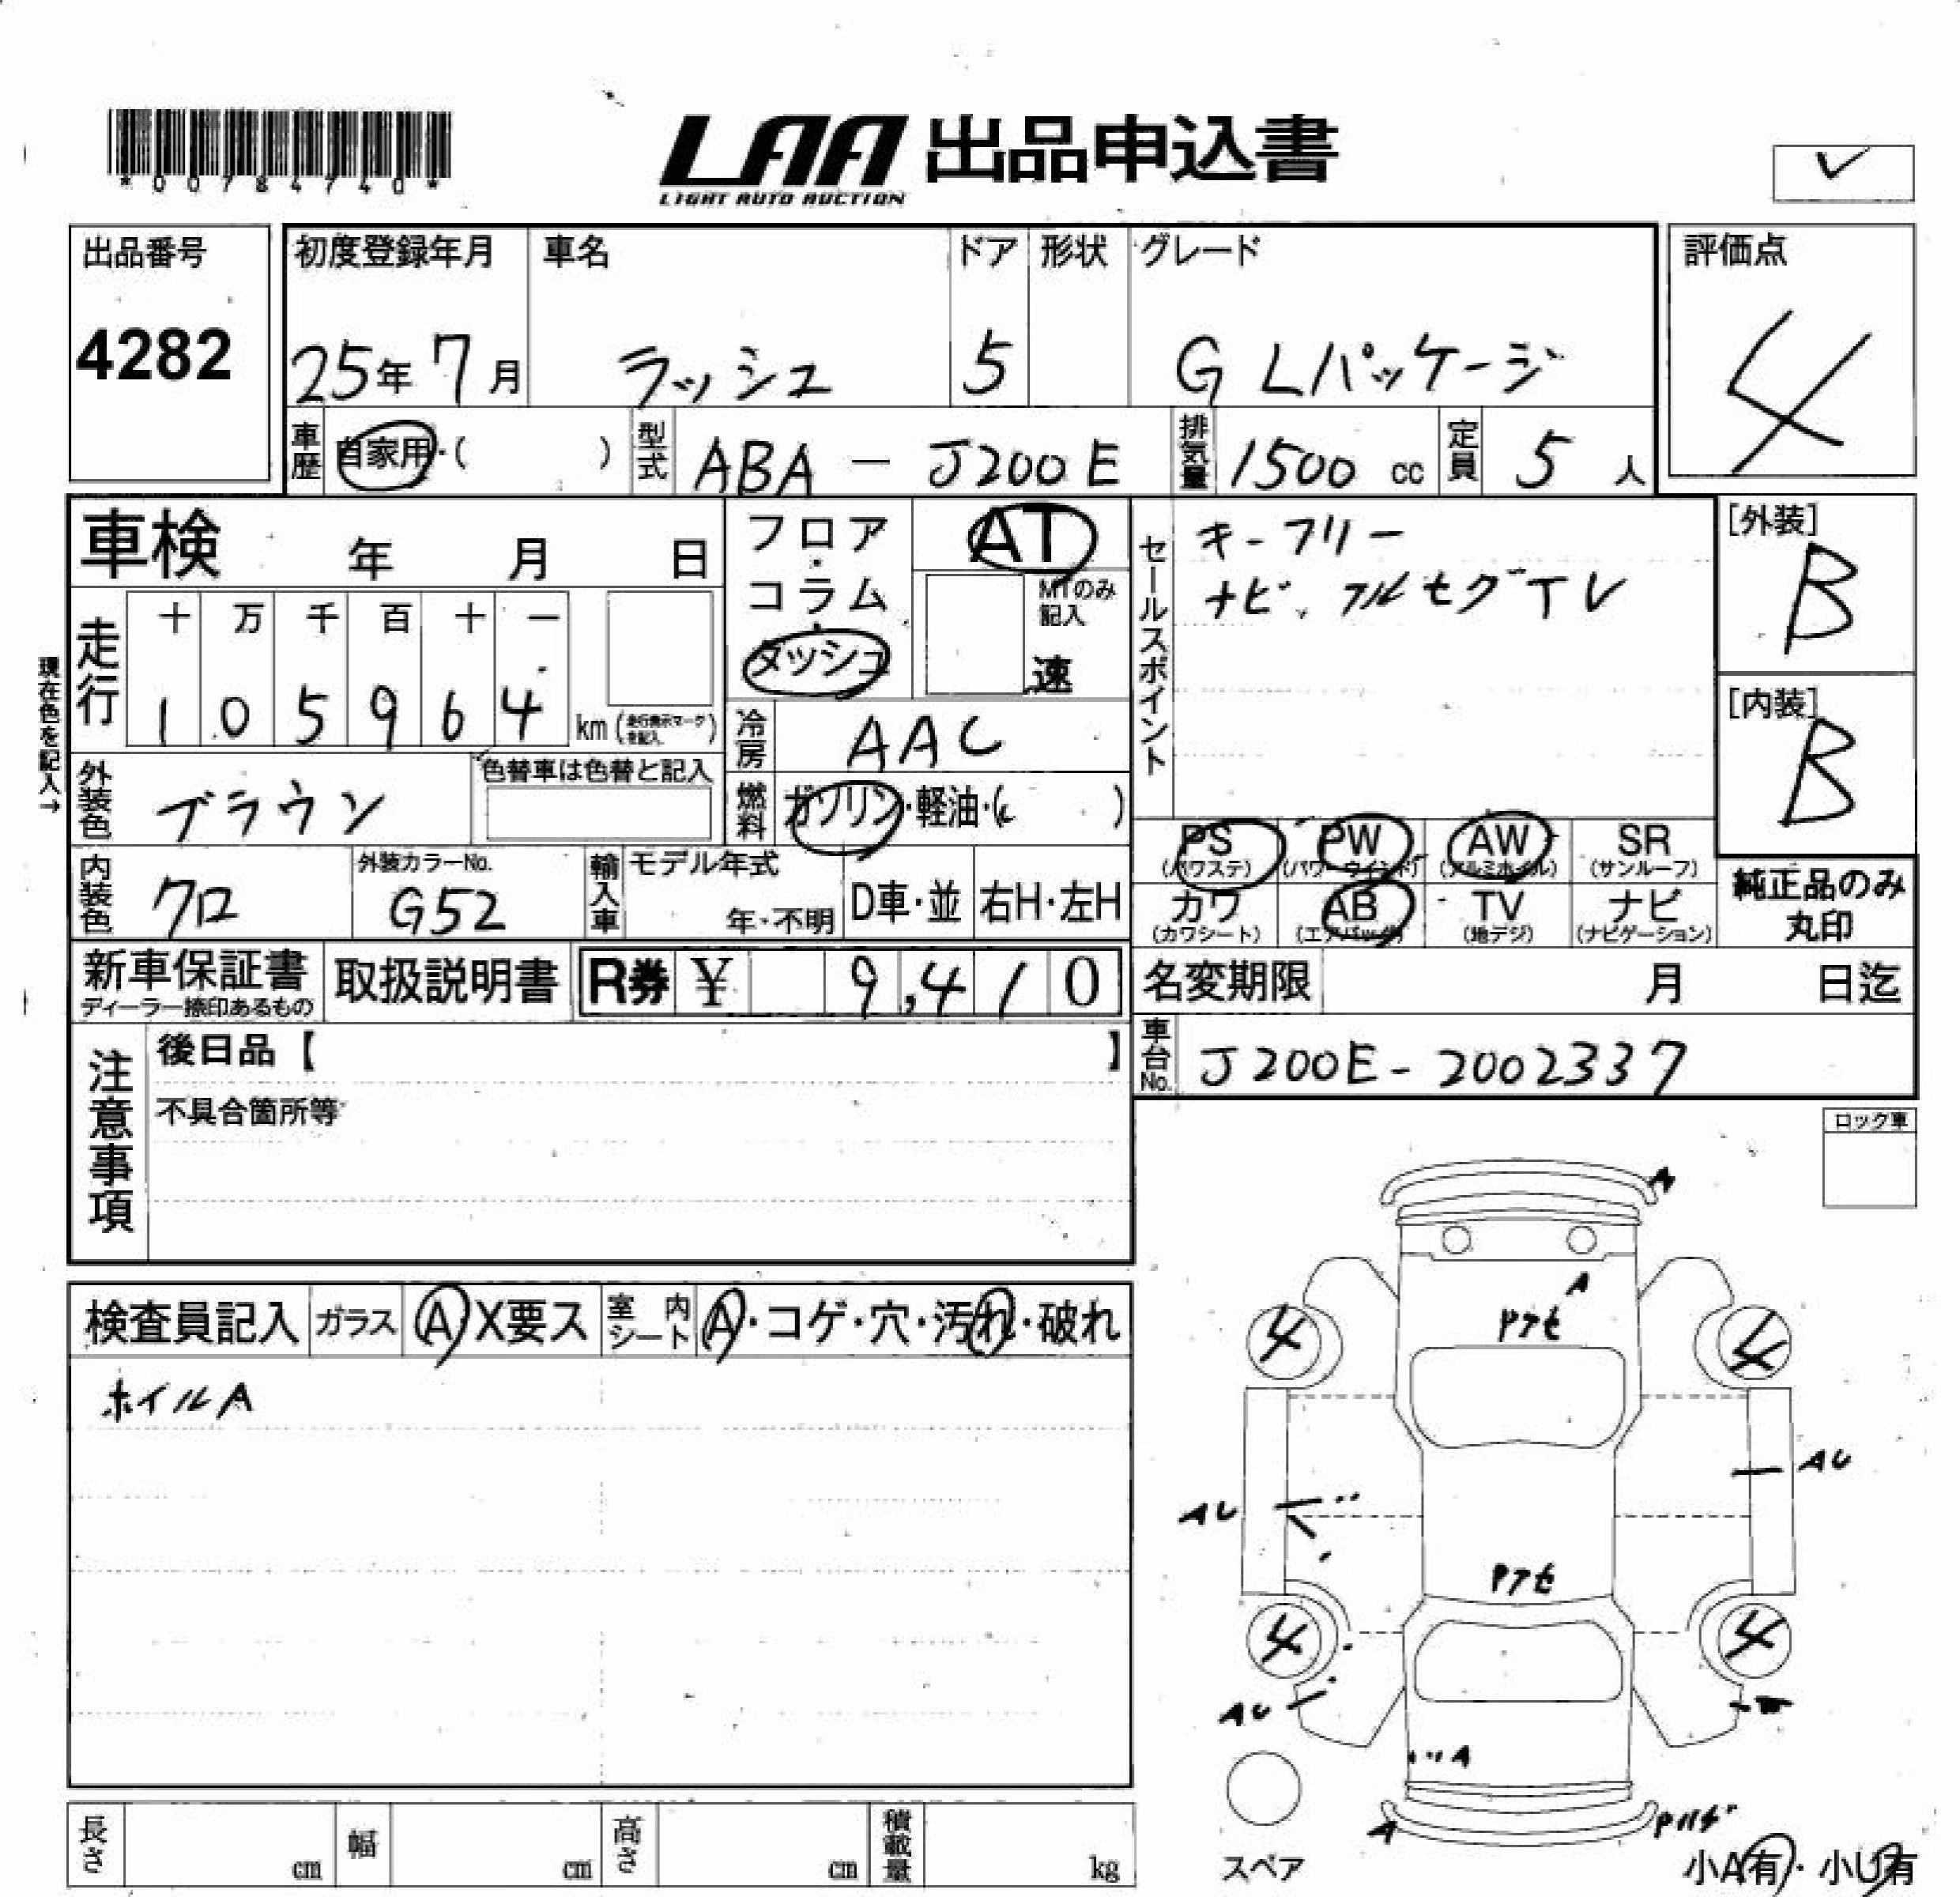 *00784740*
LAA 出品申込書
LIGHT AUTO AUCTION
出品番号
4282
初度登録年月
25年 7月
車名
ラッシュ
ドア
5
形状
グレード
G Lパッケージ
評価点
4
車歴 自家用・( )
型式 ABA - J200E
排気量 1500 cc
定員 5 人
車検 年 月 日
現在色を記入→
走行
十 万 千 百 十 一
1 0 5 9 6 4
km (走行表示マークを記入)
フロア・コラム・ダッシュ
AT
MTのみ記入
速
冷房 AAC
燃料 ガソリン・軽油・( )
外装色 ブラウン
色替車は色替と記入
内装色 クロ
外装カラーNo.
G52
輸入車 モデル年式
年・不明
D車・並
右H・左H
セールスポイント
キーフリー
ナビ、フルセグTV
[外装]
B
[内装]
B
PS
(パワステ)
PW
(パワーウインド)
AW
(アルミホイル)
SR
(サンルーフ)
カワ
(カワシート)
AB
(エアバッグ)
TV
(地デジ)
ナビ
(ナビゲーション)
純正品のみ
丸印
新車保証書
ディーラー捺印あるもの
取扱説明書
R券 ¥ 9,410
名変期限 月 日迄
車台No. J200E-2002337
注意事項
後日品【 】
不具合箇所等
ロック車
検査員記入
ガラス A X要ス
室内シート A・コゲ・穴・汚れ・破れ
ホイルA
A
A
Pアセ
4
4
AU
AU
Pアセ
4
4
AU
A
A
スペア
小A有・小U有
長さ cm
幅 cm
高さ cm
積載量 kg